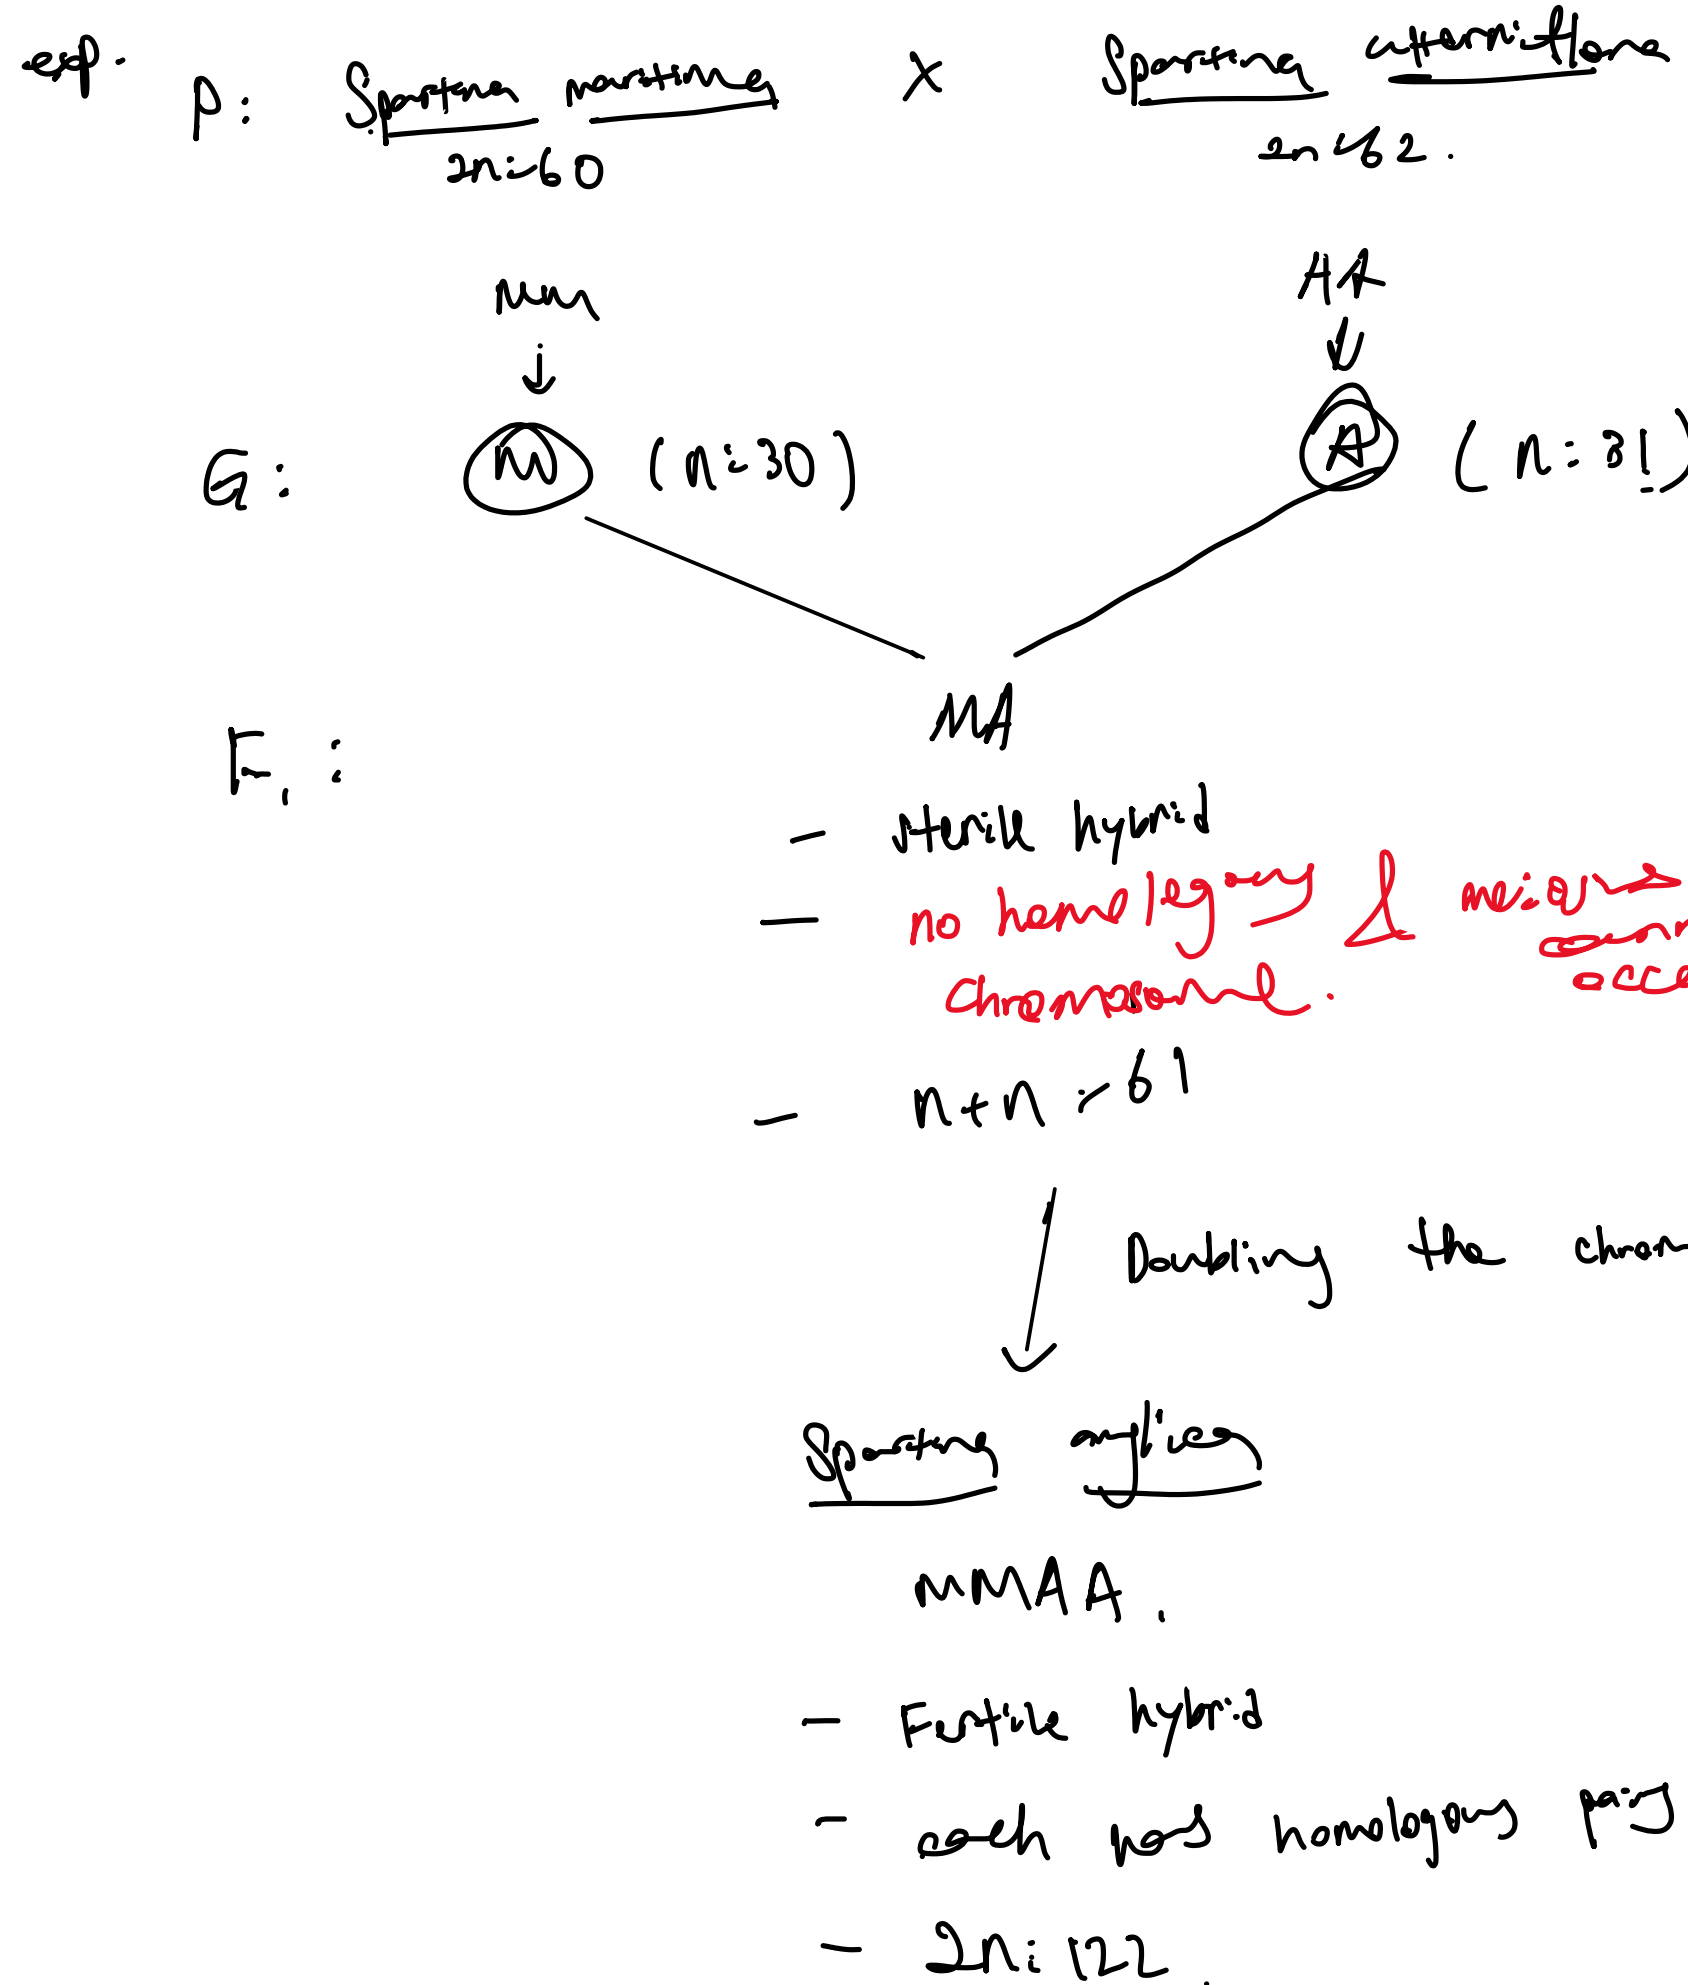 exp.
P: Spartina maritima X Spartina alterniflora
2n=60 2n=62.
MM AA
G: M (n=30) A (n=31)
MA
F1:
- sterile hybrid
- no homologous & meiosis
chromosome.
- n+n = 61
Doubling the chrom
Spartina anglica
MMAA.
- Fertile hybrid
- each has homologous pairs
- 2n=122.